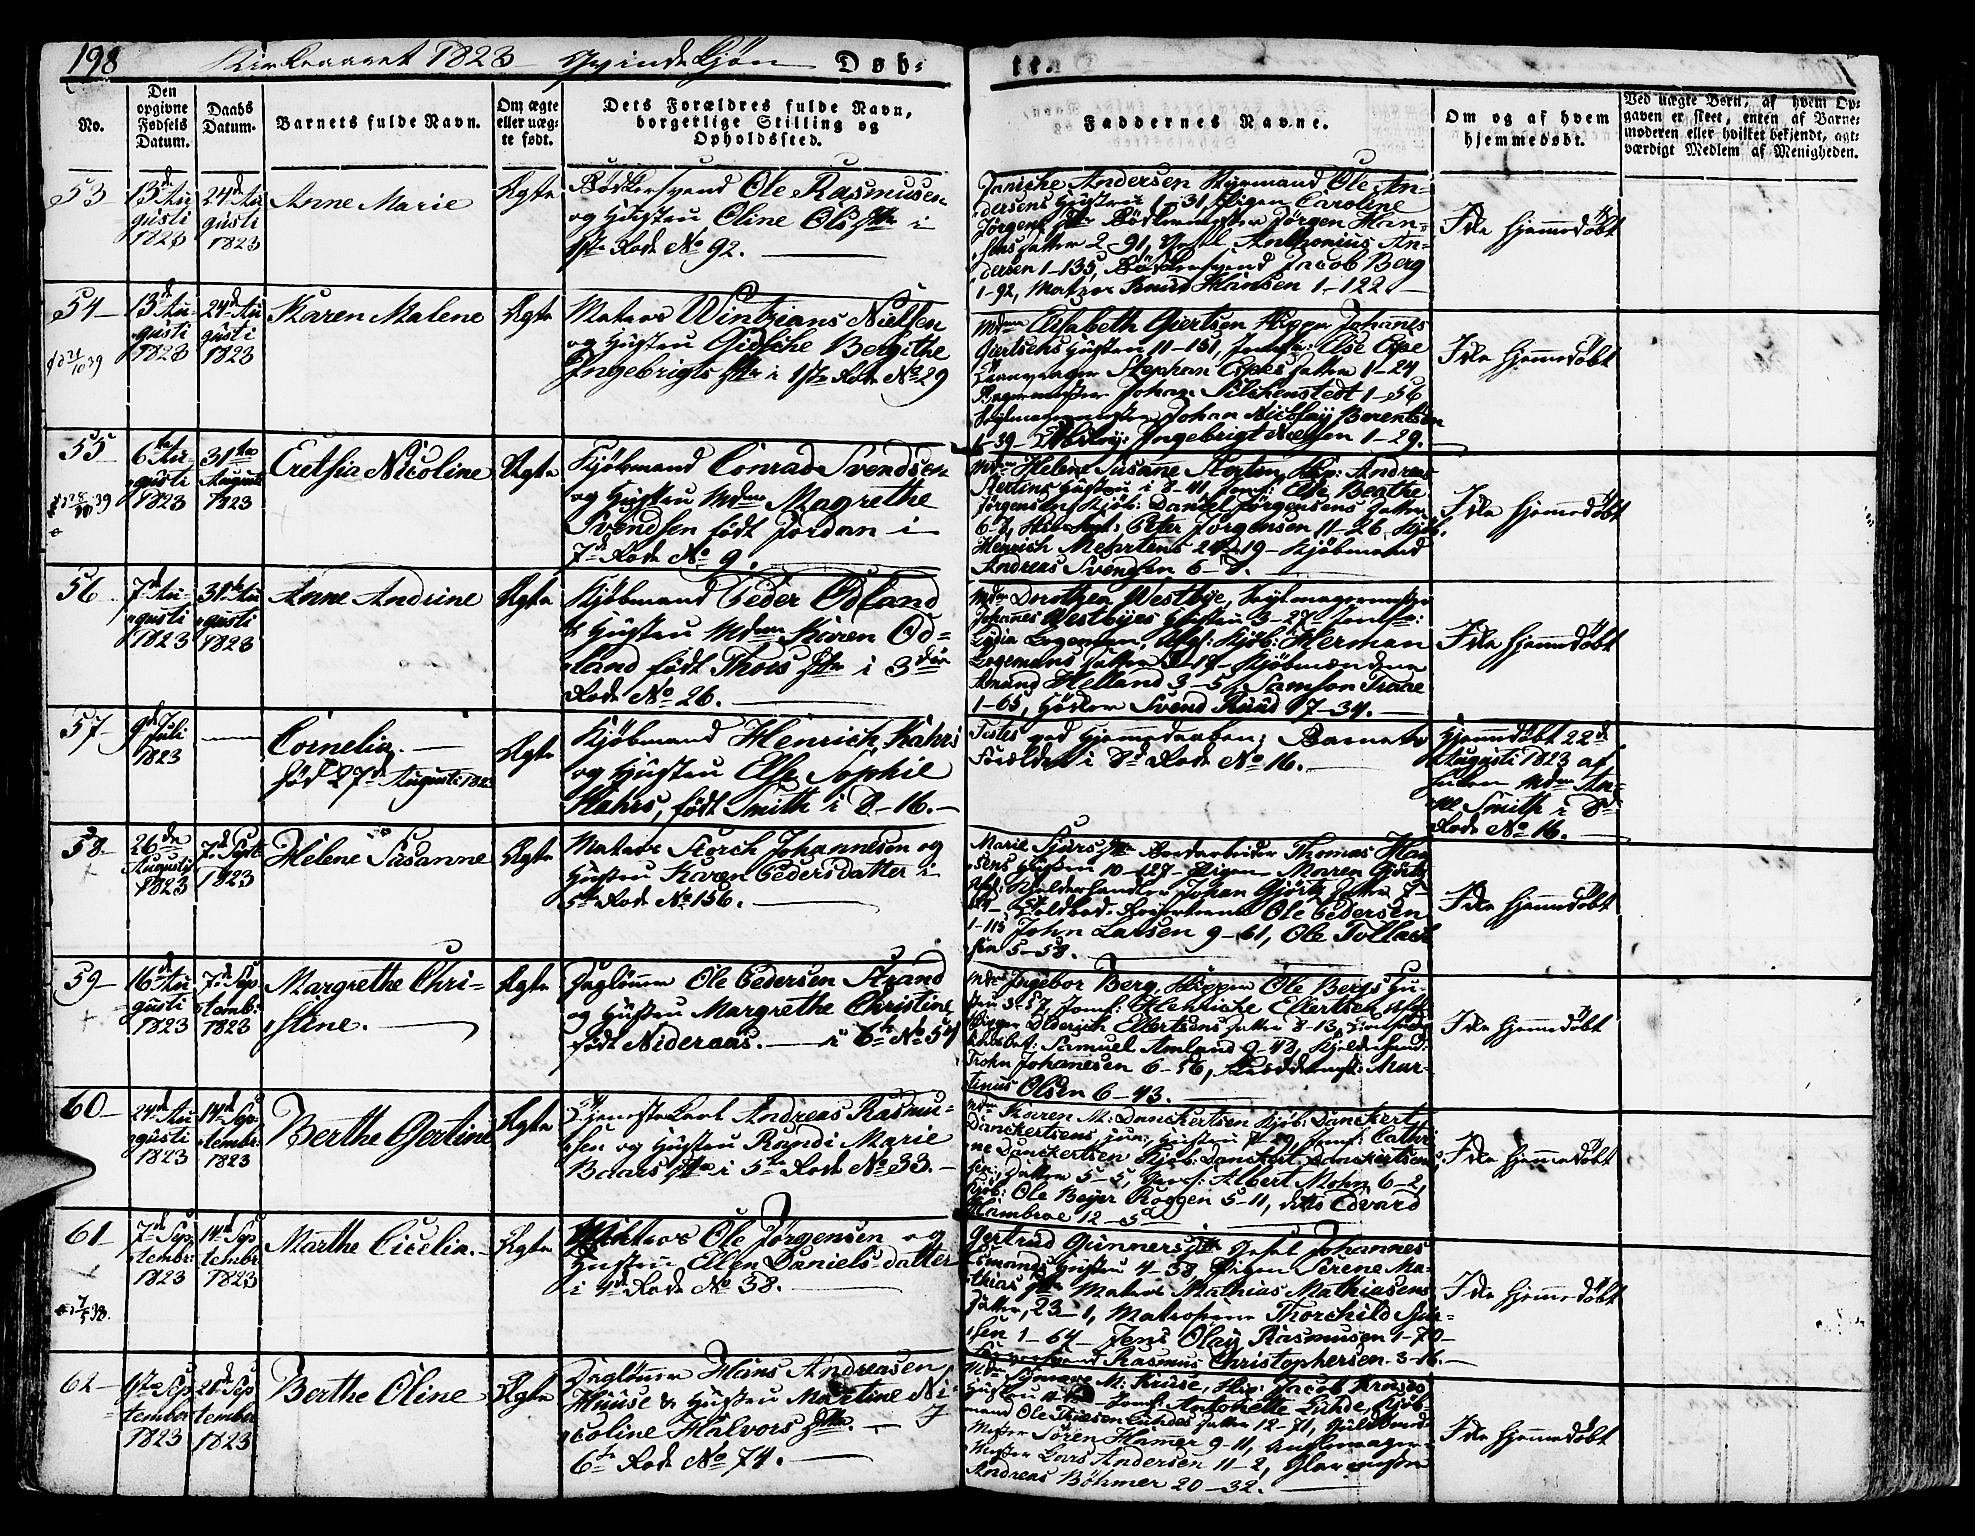 198 Kirkeaaret 1823 Qvindekjøn Døb-
te.
No.
Den opgivne Fødsels Datum.
Daabs Datum.
Barnets fulde Navn.
Om ægte eller uæg- te født.
Dets Forældres fulde Navn, borgerlige Stilling og Opholdssted.
Faddernes Navne.
Om og af hvem hjemmedøbt.
Ved uægte Børn, af hvem Op- gaven er skeet, enten af Barne- moderen eller hvilket bekjendt, agt- værdigt Medlem af Menigheden.
53
13de Au-
gusti
1823
24de Au
gusti
1823
Anne Marie
Ægte
Bødkersvend Ole Rasmusen
og Hustru Oline Ols Dtr i
1ste Rode No 92.
Janiche Andersen Styrmand Ole An-
dersens Hustru 1-31, Pigen Caroline
Jørgens Dtr Bødkermester Jørgen Han-
sens Datter 2-91, Anthonius An-
dersen 1-135, Bødkersvend Jacob Berg
1-92, Matros Knud Hansen 1-122.
Ikke hjemmedøbt
54
13de Au-
gusti
1823
24de Au
gusti
1823
Karen Malene
Ægte
Matros Wintzians Nielsen
og Hustru Gidsche Bergithe
Ingebrigts Dtr i 1ste Rode No 29
Mdme Elisabeth Giertsen Skipper Johannes
Giertsens Hustru 11-151, Jomfr: Else
Stephan Datter 1-24
Johan Silchenstedt 1-56
Johan Nicolay Berentsen
1-39 Ingebrigt Nielsen 1-29.
Ikke hjemmedøbt
55
6te Au-
gusti
1823
31te
Augusti
1823
Nicoline
Ægte
Kjøbmand Conrad Svendsen
og Hustru Mdme Magrethe
Svendsen født Jordan i
7de Rode No 9.
Mdme Helene Susanne Andreas
Hustru i 8-41, Jomf: Else Beathe
Jørgensen, Kjøb: Daniel Jørgensens Datter
6-8, Peter Jørgensen 11-26 Kjøb.
Henrich Mehrtens 19 Kjøbmand
Andreas Svendsen 6-8.
Ikke hjemmedøbt
56
7de Au-
gusti
1823
31te Au
gusti
1823
Anne Andrine
Ægte
Kjøbmand Peder Odland
& Hustru Mdme Karen Od-
land født Thors Dtr i 3die
Rode No 26.
Mdme Dorothea Westbye, Seylmagermester
Johannes Westbyes Hustru 3-27 Jomfr:
Lydia Logeman, Kjøb: Herman
Logemans Datter Kjøbmændene
Amund Helland 3-5, Samson Traae
1-65, Høker Svend Ruud 7-34.
Ikke hjemmedøbt
57
9de Juli
1823
Cornelia.
død 27de Augusti 1823
Ægte
Kjøbmand Henrich Kahrs
og Hustru Else Sophie
Kahrs, født Smith i 8-16.
Testes ved Hjemmedaaben: Barnets
Forældre i 8de Rode No 16.
Hjemmdøbt 22de
Augusti 1823 af
Mdme An-
ne Smith i 8de
Rode No 16.
58
26de
Augusti
1823
7de Septe
1823
Helene Susanne
Ægte
Matros Storch Johannesen og
Hustru Karen Pedersdatter i
5te Rode No 156.
Marie Sjurs Dtr Bordarbeider Thomas Han
sens Hustru 10-127 Pigen Maren Gjørtz
Kjelderhandler Johan Gjørtz Datter
Ole Pedersen
1-115 John Larsen 9-61, Ole Tollack
sen 5-58.
Ikke hjemmedøbt
59
16de Au-
gusti
1823
7de Sep
tembr:
1823
Margrethe Chri-
stine.
Ægte
Daglønner Ole Pedersen Strand
og Hustru Margrethe Christine
født Nideraas. i 6te No 54
Mdme Ingebor Berg, Skipper Ole Bergs Hu-
stru 3-57, Jomf: Henriche Ellertsen
Skipper Olderich Ellertsens Datter i 8-13,
Samuel Amland 9-42, Kjelderhand:
Trohn Johanesen 6-56, Mar-
tinus Olsen 6-43.
Ikke hjemmedøbt
60
24de Au-
gusti
1823
14de Sep
tembr:
1823
Berthe Gertine
Ægte
Tjenestekarl Andreas Rasmu-
sen og Hustru Randi Marie
Baars Dtr i 5te Rode No 33.
Mdme Karen M: Danckertsen Kjøb: Danckert
Danckertsens jun: Hustru Jomf: Cathri
ne Danckertsen Kjøb: Danckert Danckertsens
sen: Datter 5-5, Albert Mohn 6-2,
Kjøb: Ole Beyer Roggen 5-11, dito Edvard
Hambroe 12-5
Ikke hjemmedøbt
61
7de Sep
tembr:
1823
14de Sep
tembr
1823
Marthe Cicelia.
Ægte
Matros Ole Jørgensen og
Hustru Ellen Daniels-datter
i 4de Rode No 38.
Gertrud Gunners Dtr Johannes
Esmands Hustru 4-58 Pigen Serene Ma-
thias Dtr Matros Mathias Mathiasens
Datter, 23-1, Matroserne Thorchild
sen 1-64 Jens Olay Rasmusen 1-70
Rasmus Christophersen 3-16.
Ikke hjemmedøbt
62
9de Sep
tember
1823
21de Sep
tember
1823
Berthe Oline
Ægte
Daglønner Hans Andreasen
Huuse & Hustru Martine Ni-
coline Halvors Dtr. I
6te Rode No 74.
Mdme M: Kruse, Skip: Jacob Kruses
Hustru Jomf: Antonette Lühde, Kjøb-
mand Ole Thiesen Lühdes Datter 12-71, Guldsmed
Mester Søren Hamer 9-11,
Mester Lars Andersen 11-2, Glarmester
Andreas Böhmer 20-32.
Ikke hjemmedøbt